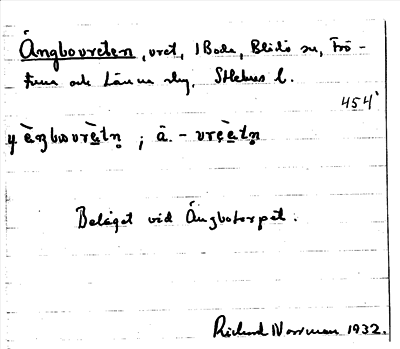 Ängbovreten, vret, i Bodа, Blidö sn, Frö-
tuna och Länna skg, Sthlms l.
454
y ɛ̀ŋbωvrèatn̥ ; ä. - vrèatn̥
Beläget vid Ängbotorpet.
Richard Norrman 1932.